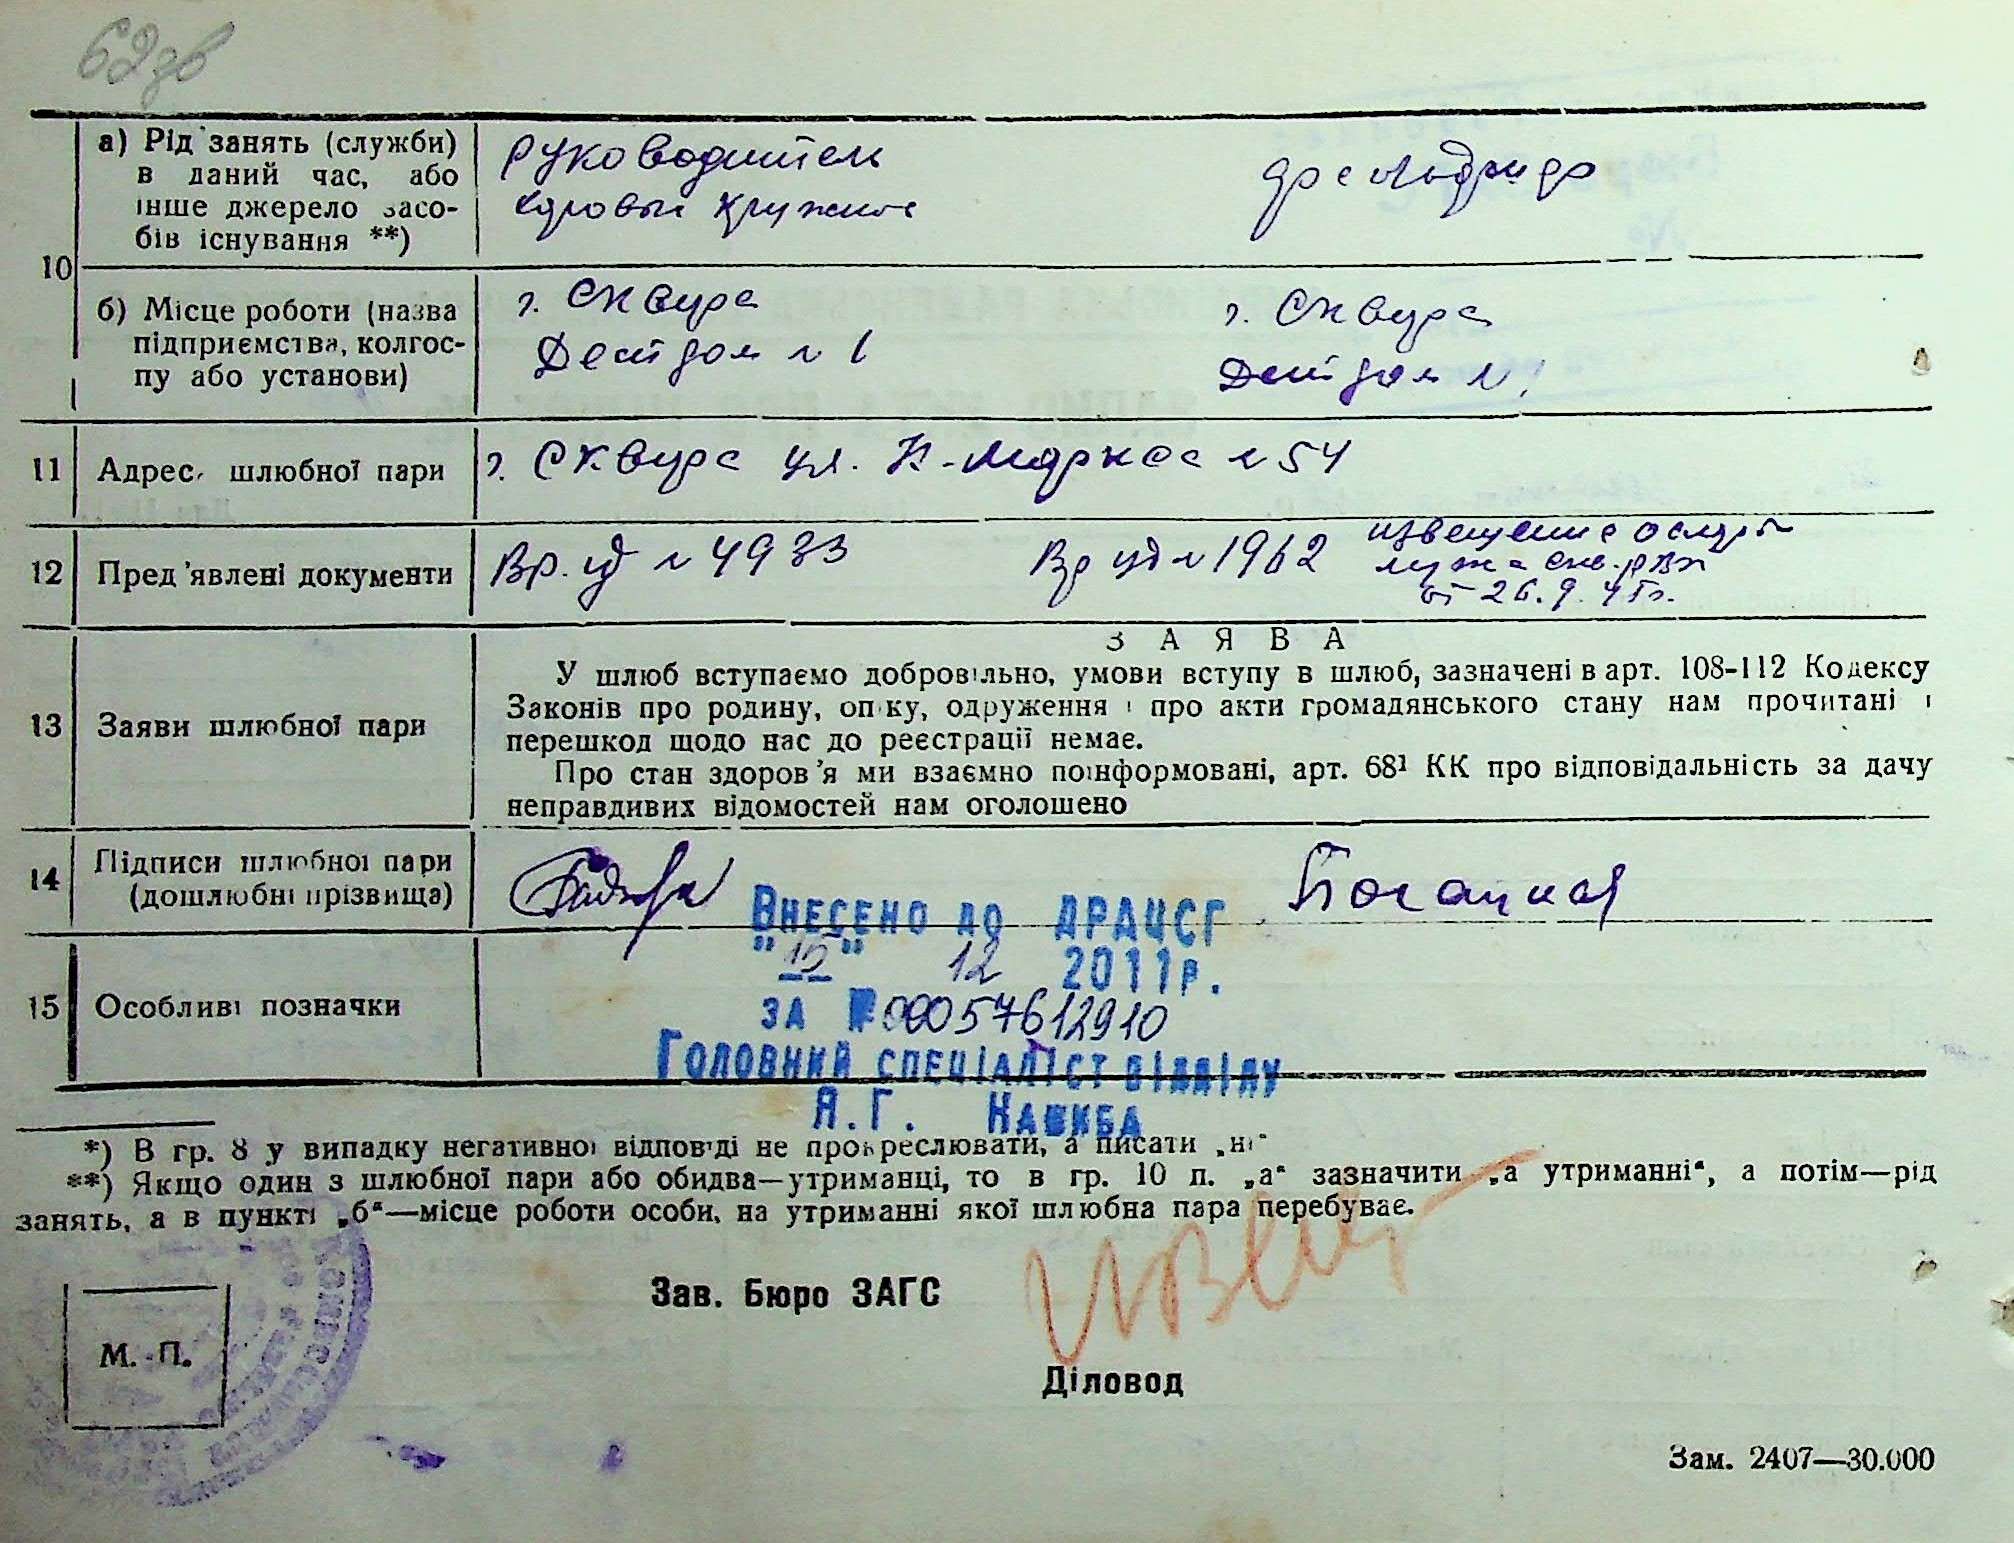 62зв
10
а) Рід занять (служби) в даний час, або інше джерело засобів існування **)
руководитель
хоровых кружков
б) Місце роботи (назва підприємства, колгоспу або установи)
г. Сквира
Детдом № 1
г. Сквира
Детдом № 1
11 Адрес шлюбної пари
г. Сквира ул. К-Маркса № 54
12 Пред'явлені документи
Вр. уд № 4933
Вр уд № 1962
извещение о смерти
мужа Скв. РВК
от 26.9.45г.
13 Заяви шлюбної пари
ЗАЯВА
У шлюб вступаємо добровільно, умови вступу в шлюб, зазначені в арт. 108-112 Кодексу
Законів про родину, опіку, одруження і про акти громадянського стану нам прочитані і
перешкод щодо нас до реєстрації немає.
Про стан здоров'я ми взаємно поінформовані, арт. 68¹ КК про відповідальність за дачу
неправдивих відомостей нам оголошено
14 Підписи шлюбної пари
(дошлюбні прізвища)
15 Особливі позначки
Внесено до ДРАЦСГ
"15" 12 2011р.
за № 00057612910
Головний спеціаліст відділу
Я.Г. Нашиба
*) В гр. 8 у випадку негативної відповіді не прокреслювати, а писати „ні"
**) Якщо один з шлюбної пари або обидва—утриманці, то в гр. 10 п. „а" зазначити „а утриманні", а потім—рід
занять, а в пункті „б"—місце роботи особи, на утриманні якої шлюбна пара перебуває.
Зав. Бюро ЗАГС
М. П.
Діловод
Зам. 2407—30.000